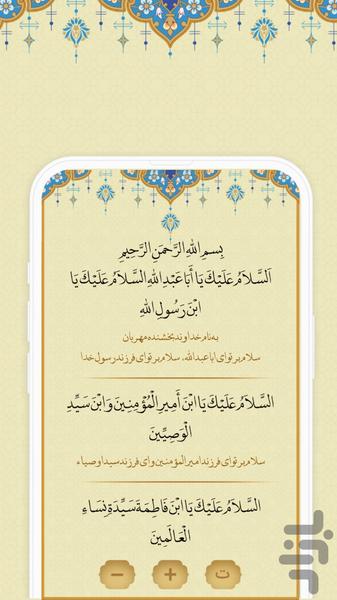 بِسمِ اللهِ الرَّحمَنِ الرَّحیمِ
اَلسَّلَامُ عَلَیْکَ یَا أَبَا عَبْدِ اللهِ السَّلَامُ عَلَیْکَ یَا
ابْنَ رَسُولِ اللهِ
به نام خداوند بخشنده مهربان
سلام بر تو ای ابا عبدالله، سلام بر تو ای فرزند رسول خدا
السَّلَامُ عَلَیْکَ یَا ابْنَ أَمِیرِ الْمُؤْمِنِینَ وَ ابْنَ سَیِّدِ
الْوَصِیِّینَ
سلام بر تو ای فرزند امیر المؤمنین و ای فرزند سید اوصیاء
السَّلَامُ عَلَیْکَ یَا ابْنَ فَاطِمَةَ سَیِّدَةِ نِسَاءِ
الْعَالَمِینَ
− + ت
بازار